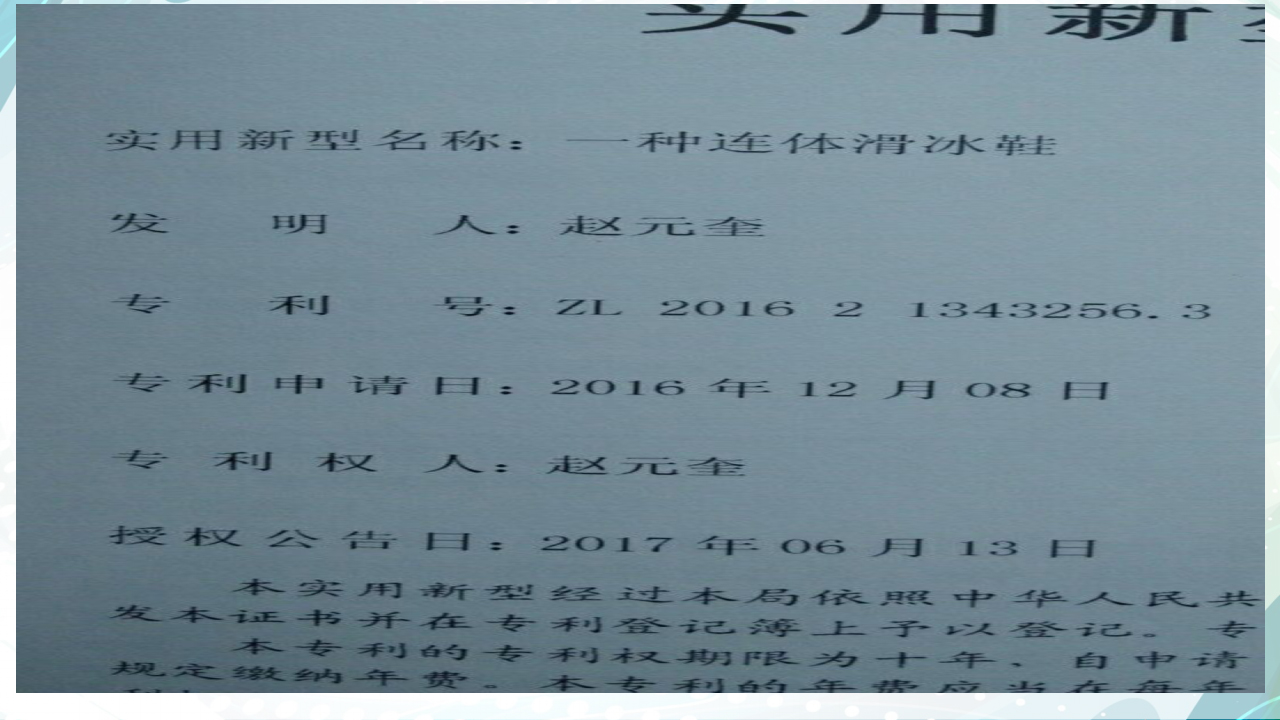 实用新
实用新型名称：一种连体滑冰鞋
发明人：赵元奎
专利号：ZL 2016 2 1343256.3
专利申请日：2016年12月08日
专利权人：赵元奎
授权公告日：2017年06月13日
本实用新型经过本局依照中华人民共
发本证书并在专利登记簿上予以登记。专
本专利的专利权期限为十年、自申请
规定缴纳年费。本专利的年费应当在每年